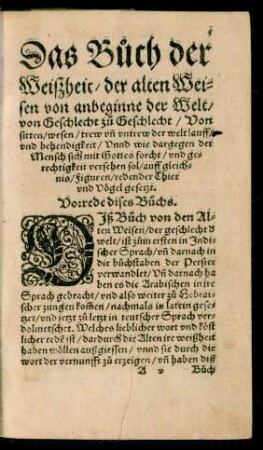 Das Bůch der
Weißheit/ der alten Wei-
sen von anbeginne der Welt/
von Geschlecht zů Geschlecht/ Von
sitten/wesen/ trew vñ vntrew der welt lauff/
vnd behendigkeit/ Vnnd wie dargegen der
Mensch sich mit Gottes forcht/ vnd ge-
rechtigkeit versehen sol/ auff gleich-
nis/ figuren/ redender Thier
vnd Vögel gesetzt.
Vorrede dises Bůchs.
DIß Bůch von den Al-
ten Weisen/ der geschlecht d
welt/ ist zům ersten in Indi-
scher Sprach/ vñ darnach in
die bůchstaben der Persier
verwandlet/ Vñ darnach ha
ben es die Arabischen in jre
Sprach gebracht/ vnd also weiter zů Hebrai-
scher zungen kom̃en/ nachmals in latein gese-
tzet/ vnd jetzt zů letzt in teutscher Sprach ver-
dolmetschet. Welches lieblicher wort vnd köst
licher rede ist/ dardurch die Alten ire weißheit
haben wöllen außgiessen/ vnnd sie durch die
wort der vernunfft zů erzeigen/ vñ haben diß
A v Bůch